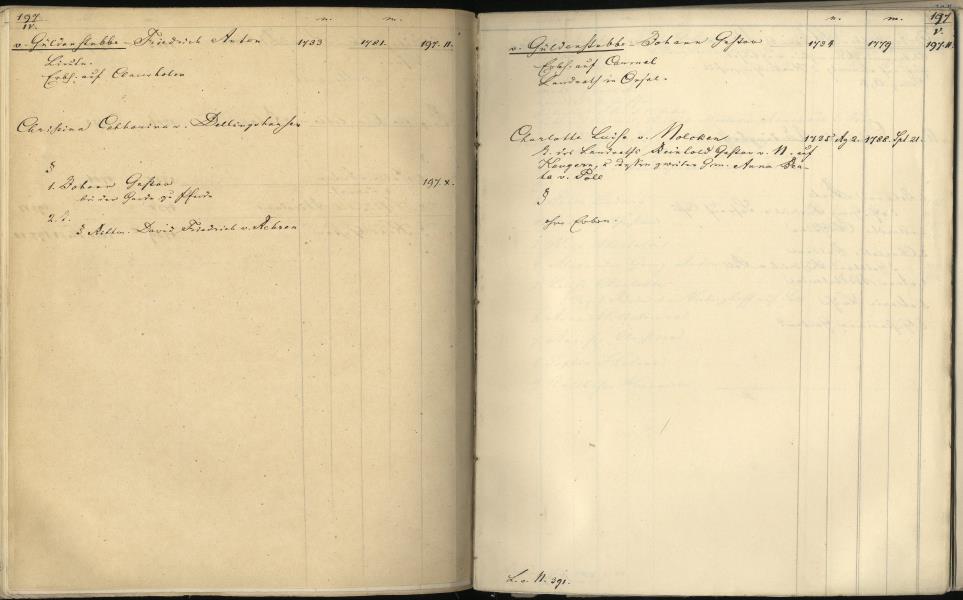 197
IV.
n. m.
v. Güldenstubbe Friedrich Anton 1733 1781. 197. II.
Lieutn.
Erbh. auf
Christina Catharina v. Dellingshausen
§
1. Johann Gustav 197. X.
bei der Garde zu Pferde
2.
David Friedrich v. Rehren
n. m. 197
V.
v. Güldenstubbe Johann Gustav 1734 1779 197. II.
Erbh. auf Carmel
Landrath in Oesel.
Charlotte Luise v. Nolcken 1735 Ag 2. 1788. Spt 21.
d. Landraths Reinhold Gustav v. N. auf
Kangern, u. dessen zweiter Gem. Anna Bea-
ta v. Poll
§
ohne Erben.
L. v. N. 391.